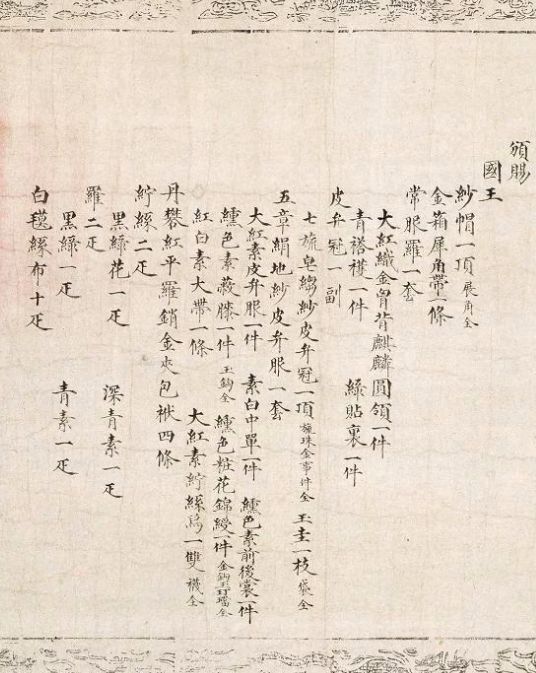 頒賜
國王
紗帽一頂展角全
金箱犀角帶一條
常服羅一套
大紅織金胷背麒麟圓領一件
青褡𧞤一件 綠貼裏一件
皮弁冠一副
七旒皂縐紗皮弁冠一頂旒珠金事件全 玉圭一枝袋全
五章絹地紗皮弁服一套
大紅素皮弁服一件 素白中單一件 纁色素前後裳一件
纁色素蔽膝一件玉鈎全 纁色粧花錦綬一件金鈎玉玎璫全
紅白素大帶一條 大紅素紵絲舄一雙襪全
丹礬紅平羅銷金夾包袱四條
紵絲二疋
黑綠花一疋 深青素一疋
羅二疋
黑綠一疋 青素一疋
白氁絲布十疋